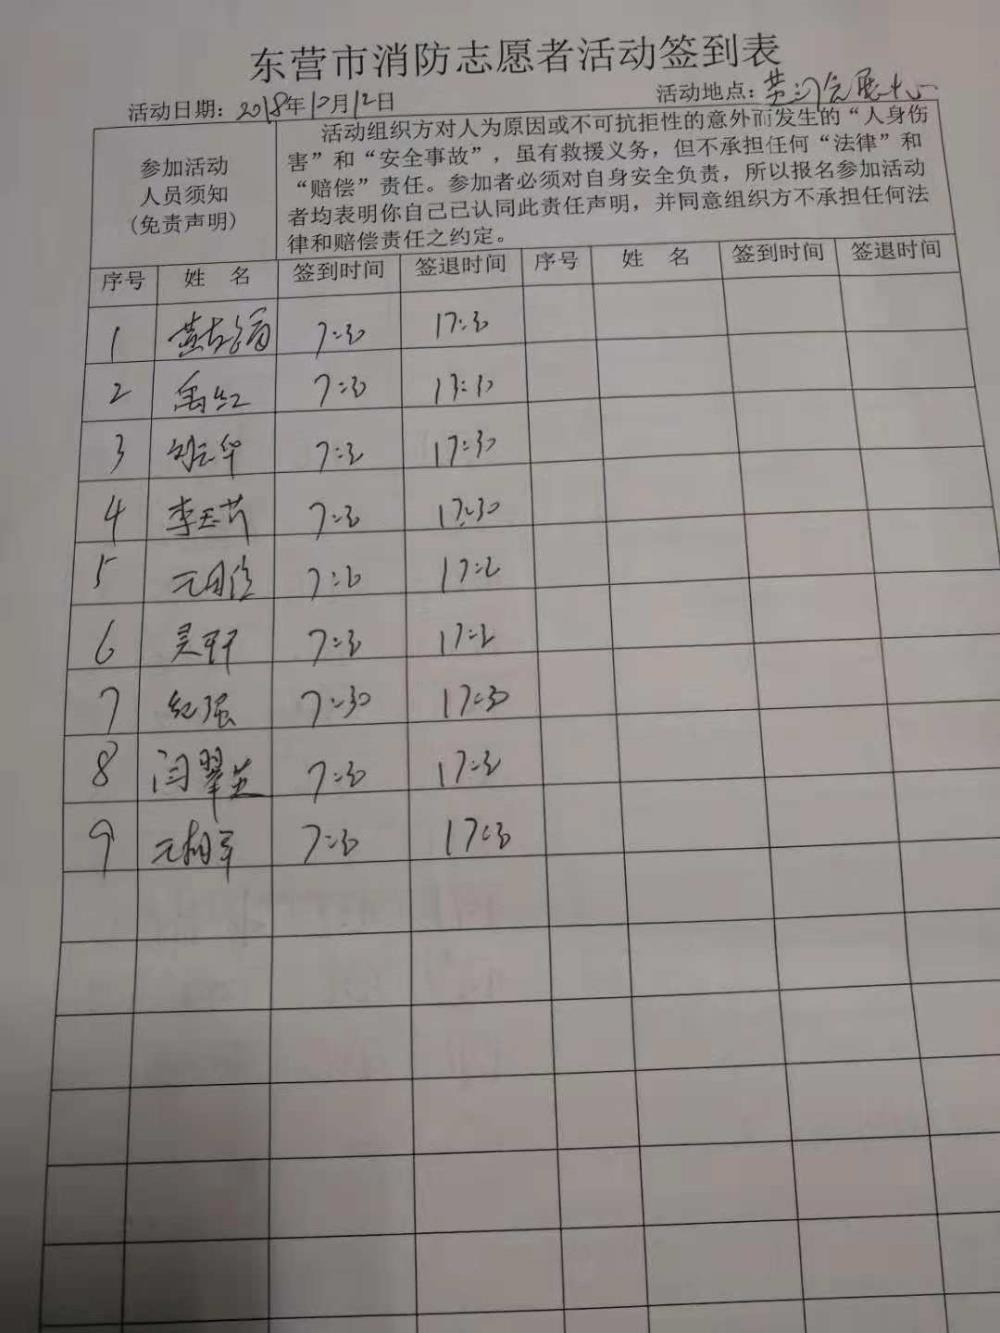 东营市消防志愿者活动签到表
活动日期：2018年10月12日 活动地点：黄河会展中心
参加活动
人员须知
(免责声明)
活动组织方对人为原因或不可抗拒性的意外而发生的“人身伤
害”和“安全事故”，虽有救援义务，但不承担任何“法律”和
“赔偿”责任。参加者必须对自身安全负责，所以报名参加活动
者均表明你自己已认同此责任声明，并同意组织方不承担任何法
律和赔偿责任之约定。
序号 姓 名 签到时间 签退时间 序号 姓 名 签到时间 签退时间
1 7:30 17:30
2 禹红 7:30 17:30
3 华 7:30 17:30
4 李玉芹 7:30 17:30
5 7:30 17:30
6 灵轩 7:30 17:30
7 纪强 7:30 17:30
8 闫翠英 7:30 17:30
9 7:30 17:30